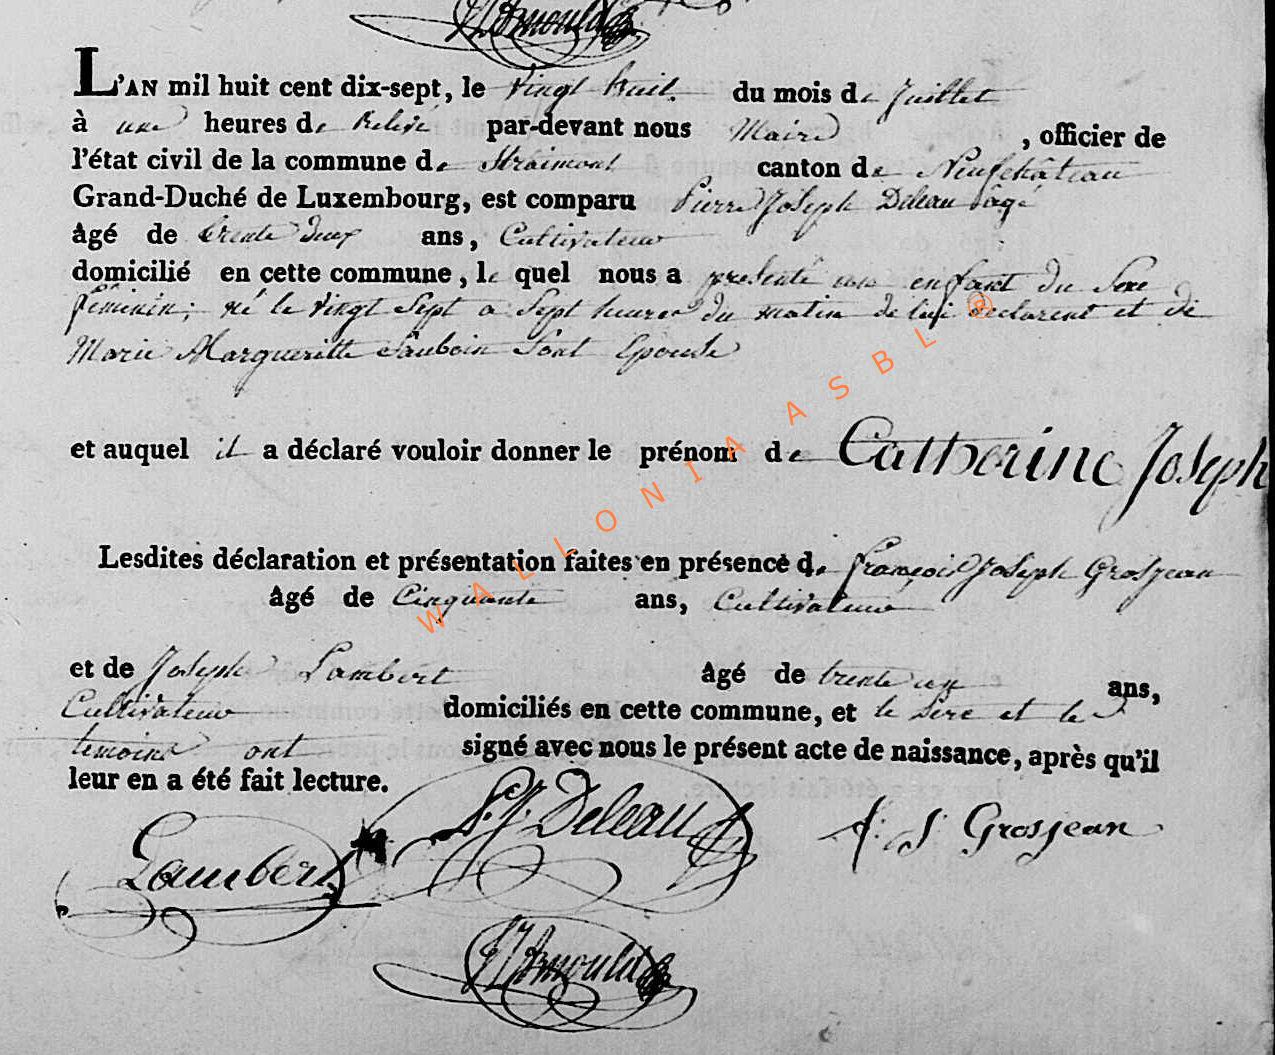 Arnould
L'AN mil huit cent dix-sept, le vingt huit du mois de Juillet
à une heures de Relevé par-devant nous Maire , officier de
l'état civil de la commune de Straimont canton de Neufchâteau
Grand-Duché de Luxembourg, est comparu Pierre Joseph Deleau âgé
âgé de trente deux ans, Cultivateur
domicilié en cette commune, le quel nous a presenté un enfant du Sexe
féminin; né le vingt Sept a Sept heures du matin de lui declarent et de
Marie Margueritte Sauboin Sont Epouse
et auquel il a déclaré vouloir donner le prénom de Catherine Joseph
Lesdites déclaration et présentation faites en présence de françois Joseph Grosjean
âgé de Cinquante ans, Cultivateur
et de Joseph Lambert âgé de trente un ans,
Cultivateur domiciliés en cette commune, et le Pere et le
temoins ont signé avec nous le présent acte de naissance, après qu'il
leur en a été fait lecture.
P. J. Deleau
Lambert
f. J. Grosjean
Arnould
WALLONIA ASBL ®